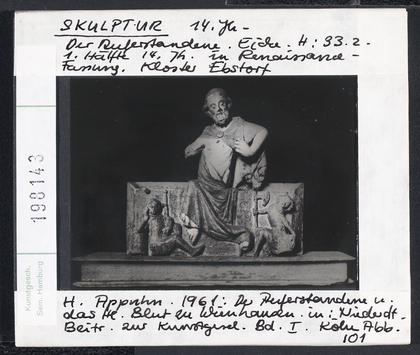 SKULPTUR 14. Jh.
Der Auferstandene. Eiche. H: 33.2.
1. Hälfte 14. Jh. in Renaissance-
Fassung. Kloster Ebstorf
198143
Kunstgesch.
Sem. Hamburg
H. Appuhn. 1961. Der Auferstandene u.
das Hl. Blut zu Wienhausen. in: Niederdt.
Beitr. zur Kunstgesch. Bd. I. Köln Abb.
101